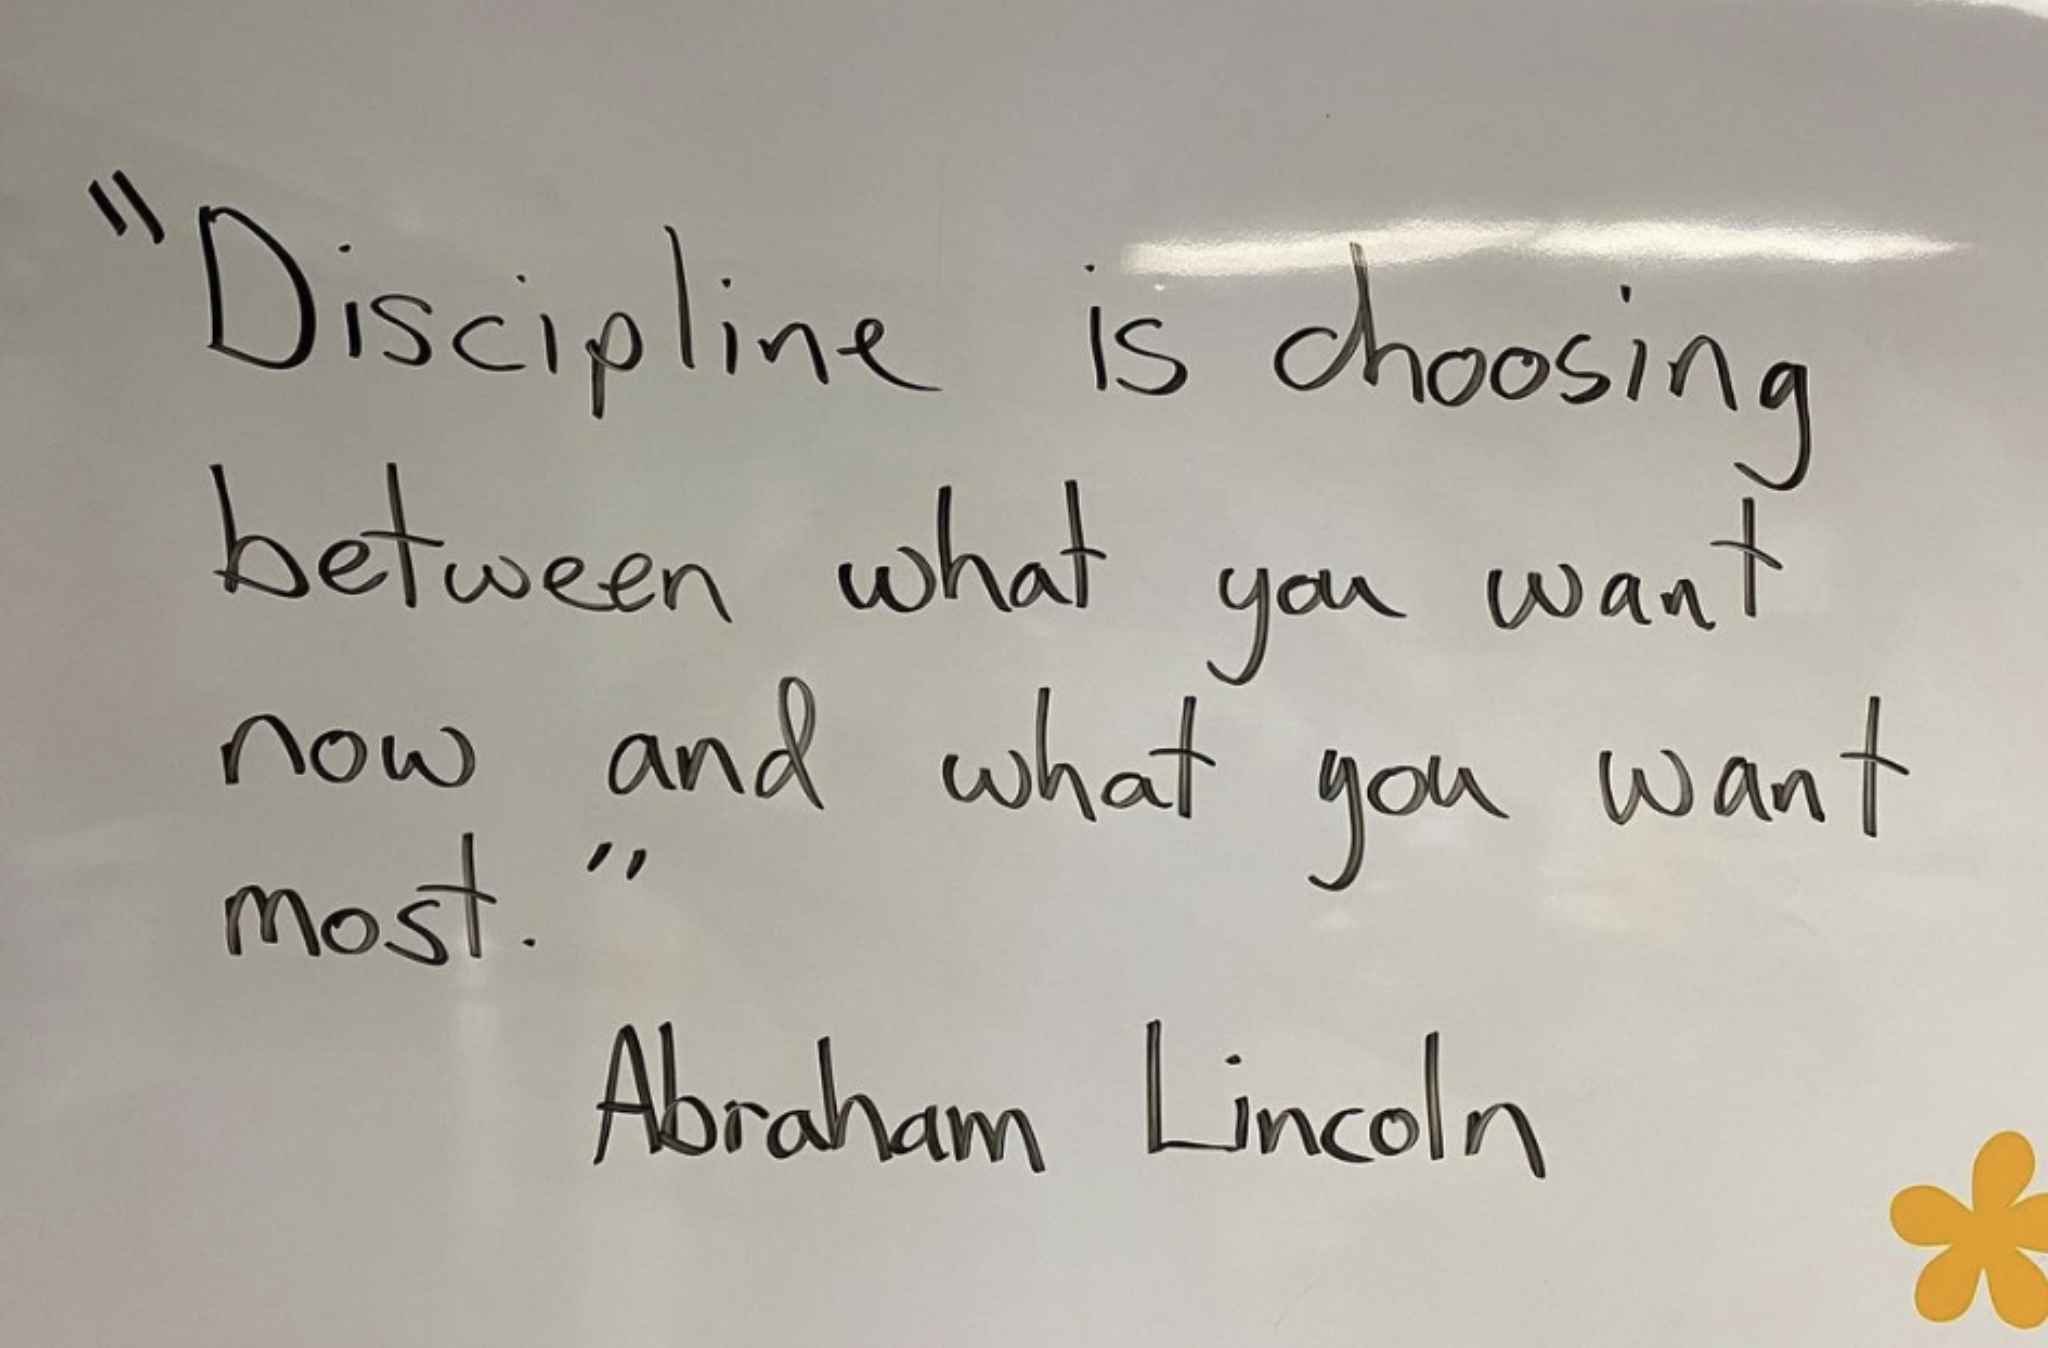 "Discipline is choosing
between what you want
now and what you want
most."
Abraham Lincoln